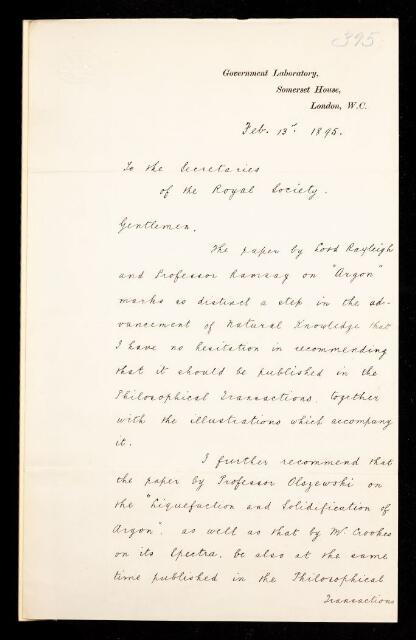 395
Government Laboratory,
Somerset House,
London, W.C.
Feb. 13th. 1895.
To the Secretaries
of the Royal Society.
Gentlemen,
The paper by Lord Rayleigh
and Professor Ramsay on "Argon"
marks so distinct a step in the ad-
vancement of Natural Knowledge that
I have no hesitation in recommending
that it should be published in the
Philosophical Transactions, together
with the illustrations which accompany
it.
I further recommend that
the paper by Professor Olszewski on
the "Liquefaction and Solidification of
Argon", as well as that by Mr. Crookes
on its Spectra, be also at the same
time published in the Philosophical
Transactions